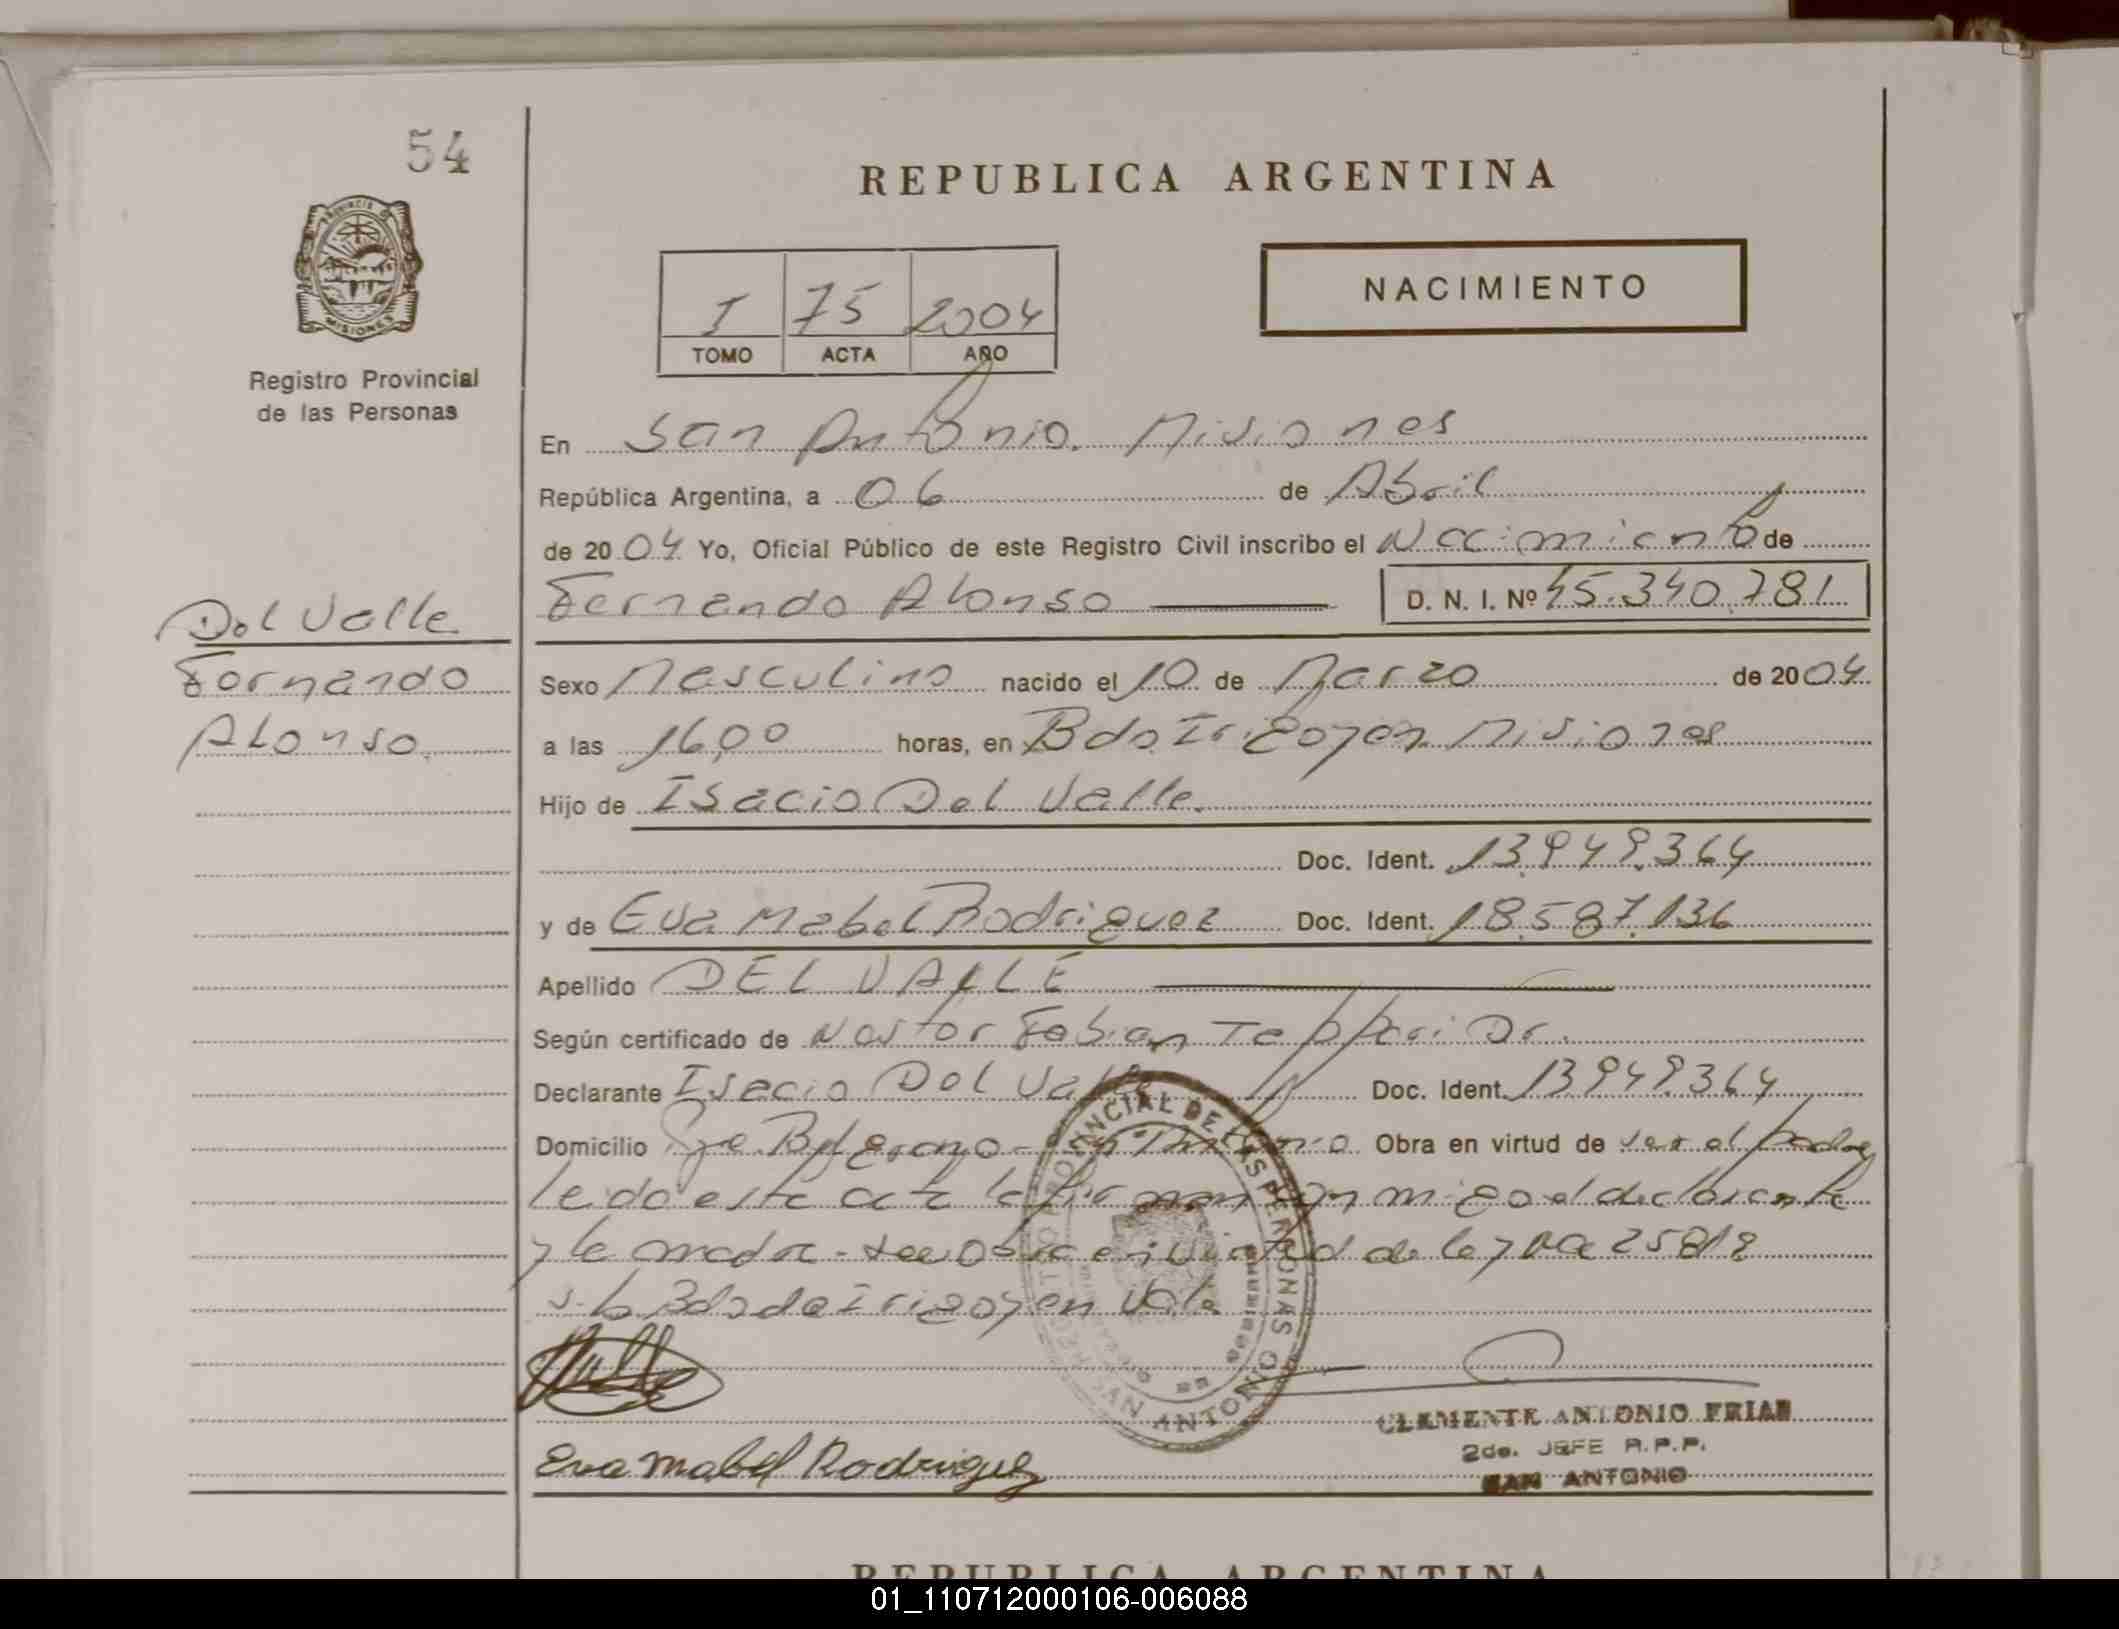 54
REPUBLICA ARGENTINA
PROVINCIA DE
MISIONES
NACIMIENTO
I 75 2004
TOMO ACTA AÑO
Registro Provincial
de las Personas
En San Antonio. Misiones
República Argentina, a 06 de Abril
de 2004 Yo, Oficial Público de este Registro Civil inscribo el Nacimiento de
Fernando Alonso D. N. I. Nº 45.340.781
Del Valle
Fernando
Alonso
Sexo Masculino nacido el 10 de Marzo de 2004
a las 16,00 horas, en Bdo. Irigoyen. Misiones
Hijo de Isacio Del Valle.
Doc. Ident. 13.949.364
y de Eva Mabel Rodriguez Doc. Ident. 18.587.136
Apellido DEL VALLE
Según certificado de Nestor Fabian Dr.
Declarante Isacio Del Valle Doc. Ident. 13949364
Domicilio Obra en virtud de ser el padre
leido esta acta la firman conmigo el declarante
y la madre - Obra en virtud de ley 25818
s-b Bdo de Irigoyen Vale
REGISTRO PROVINCIAL DE LAS PERSONAS
SAN ANTONIO
Eva Mabel Rodriguez
CLEMENTE ANTONIO FRIAS
2do. JEFE R.P.P.
SAN ANTONIO
REPUBLICA ARGENTINA
01_110712000106-006088